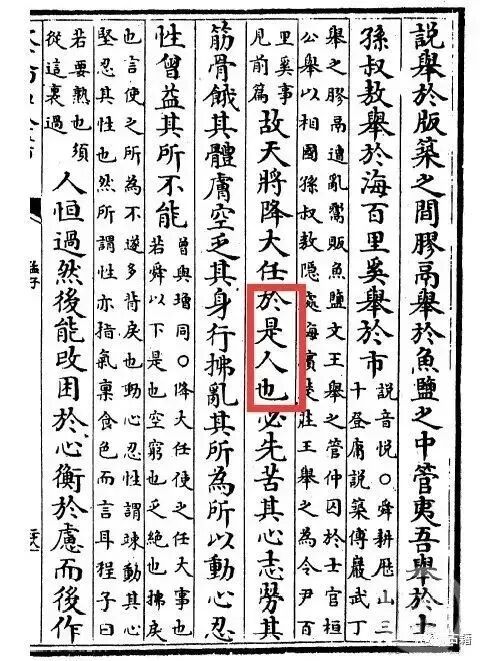 説舉於版築之間膠鬲舉於魚鹽之中管夷吾舉於士
孫叔敖舉於海百里奚舉於市
説音悦○舜耕歴山三
十登庸説築傅巖武丁
舉之膠鬲遭亂鬻販魚鹽文王舉之管仲囚於士官桓
公舉以相國孫叔敖隱處海濱楚莊王舉之為令尹百
里奚事
見前篇
故天將降大任於是人也必先苦其心志勞其
筋骨餓其體膚空乏其身行拂亂其所為所以動心忍
性曾益其所不能
曾與増同○降大任使之任大事也
若舜以下是也空窮也乏絶也拂戾
也言使之所為不遂多背戾也動心忍性謂竦動其心
堅忍其性也然所謂性亦指氣禀食色而言耳程子曰
若要熟也須
從這裏過
人恒過然後能改困於心衡於慮而後作
孟子